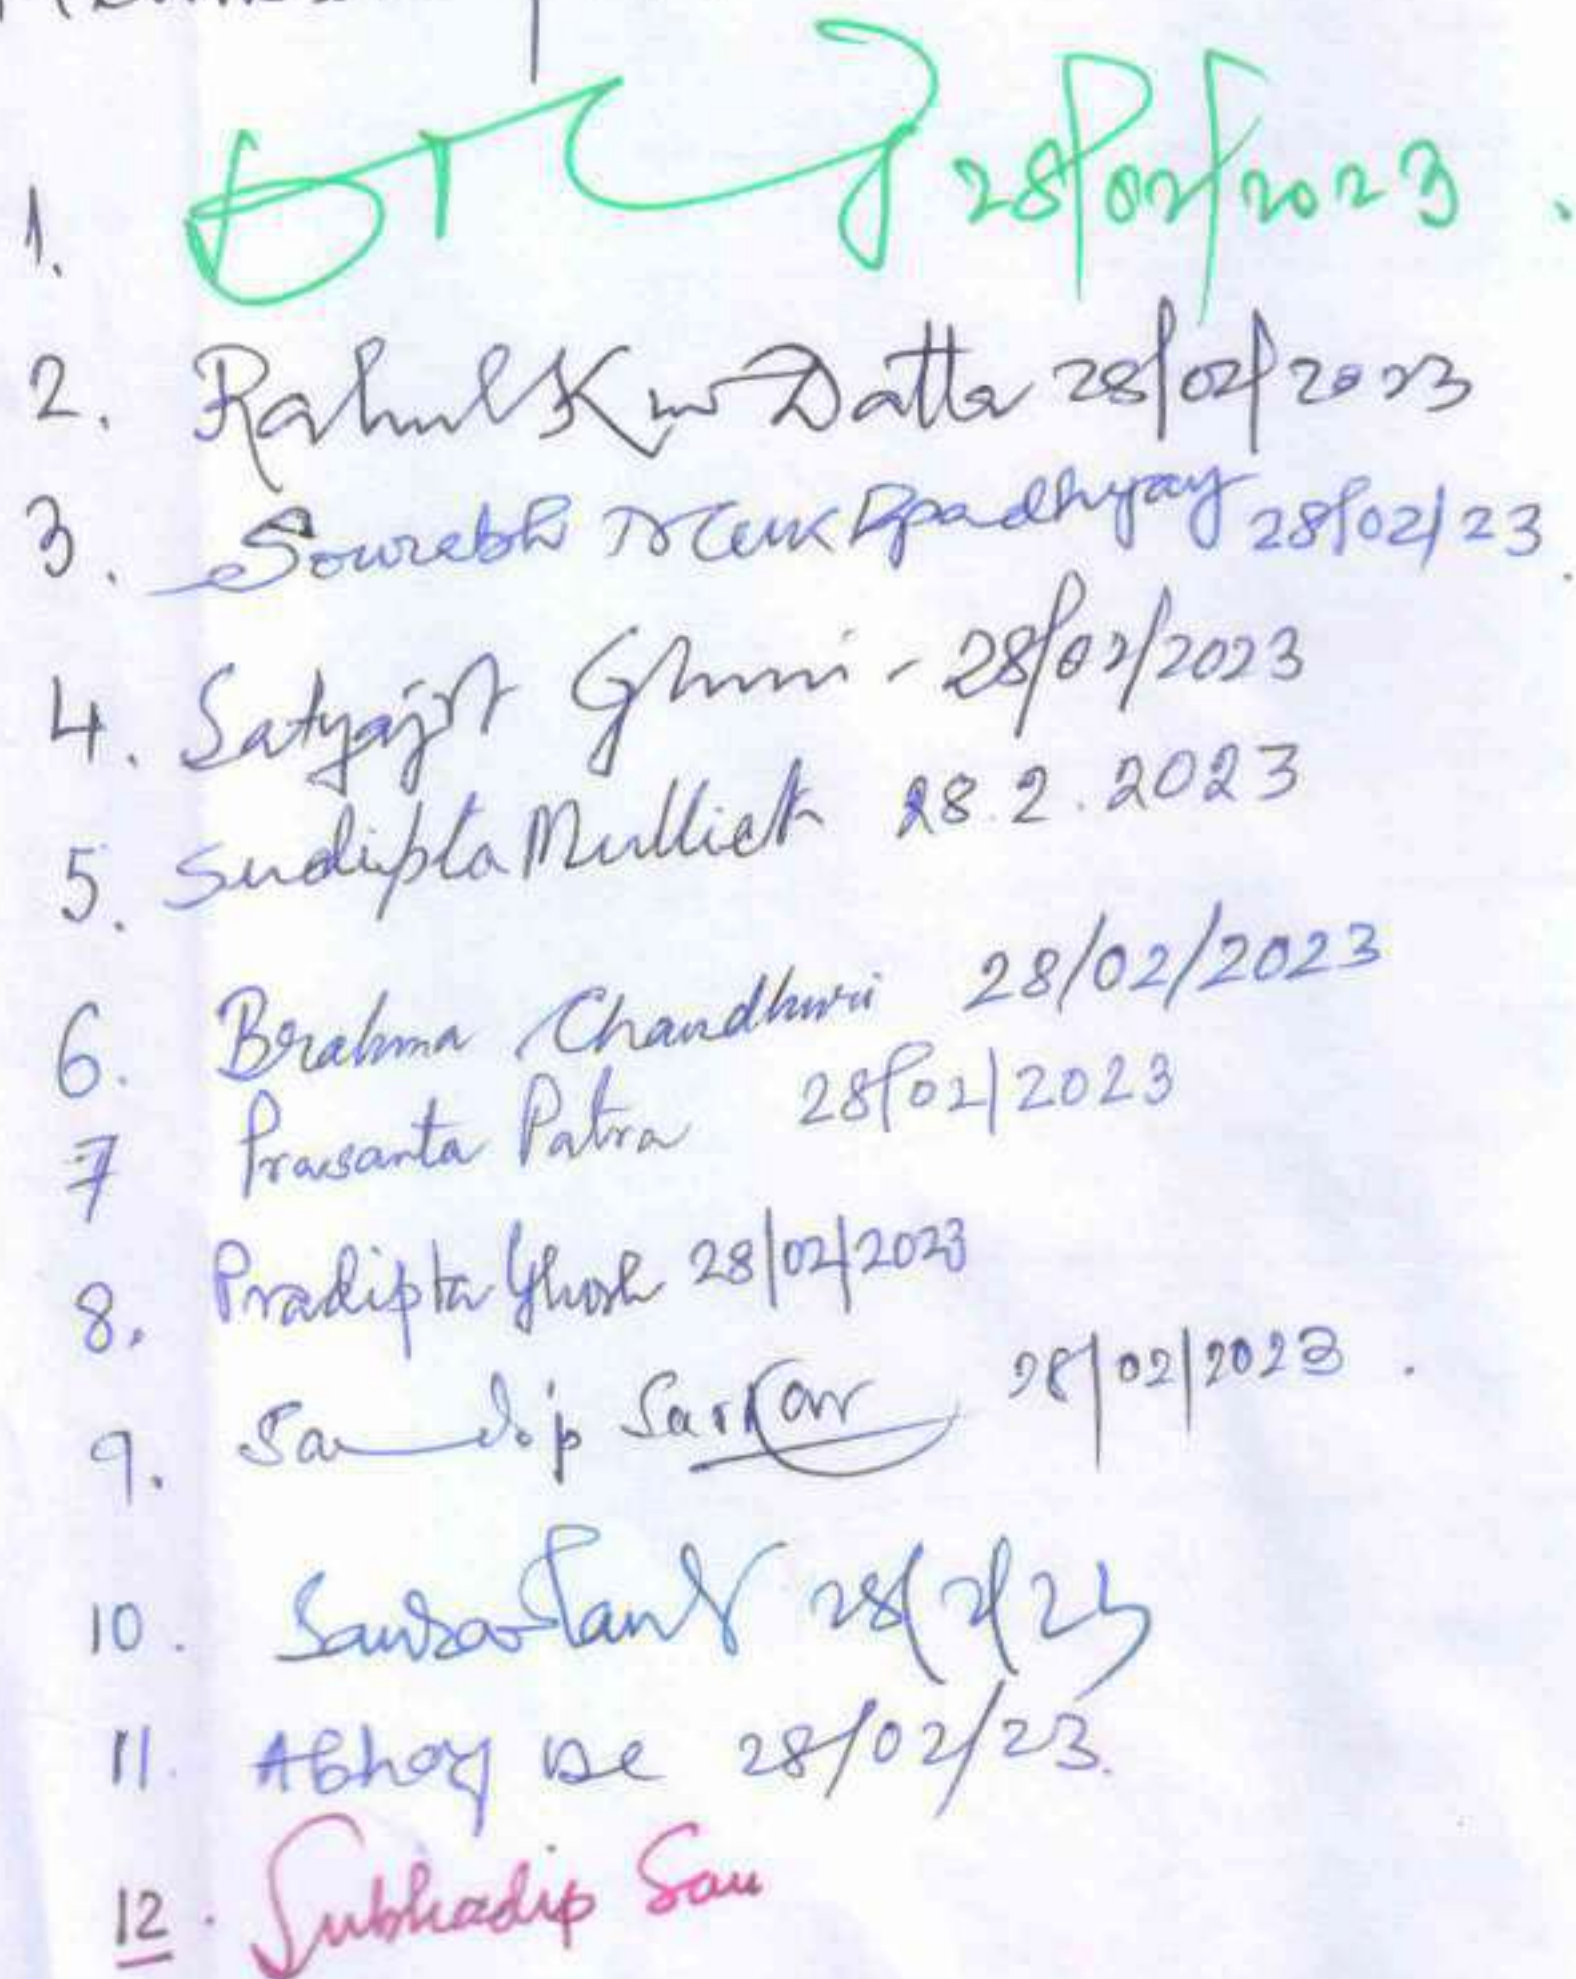 1. 28/02/2023.
2. Rahul Kr Datta 28/02/2023
3. Sourabh Mukhopadhyay 28/02/23
4. Satyajit Ghini - 28/02/2023
5. Sudipta Mullick 28.2.2023
6. Brahma Chaudhuri 28/02/2023
7 Prasanta Patra 28/02/2023
8. Pradipta Ghosh 28/02/2023
9. Sandip Sarkar 28/02/2023.
10. 28/2/23
11. Abhoy De 28/02/23.
12. Subhadip Sau